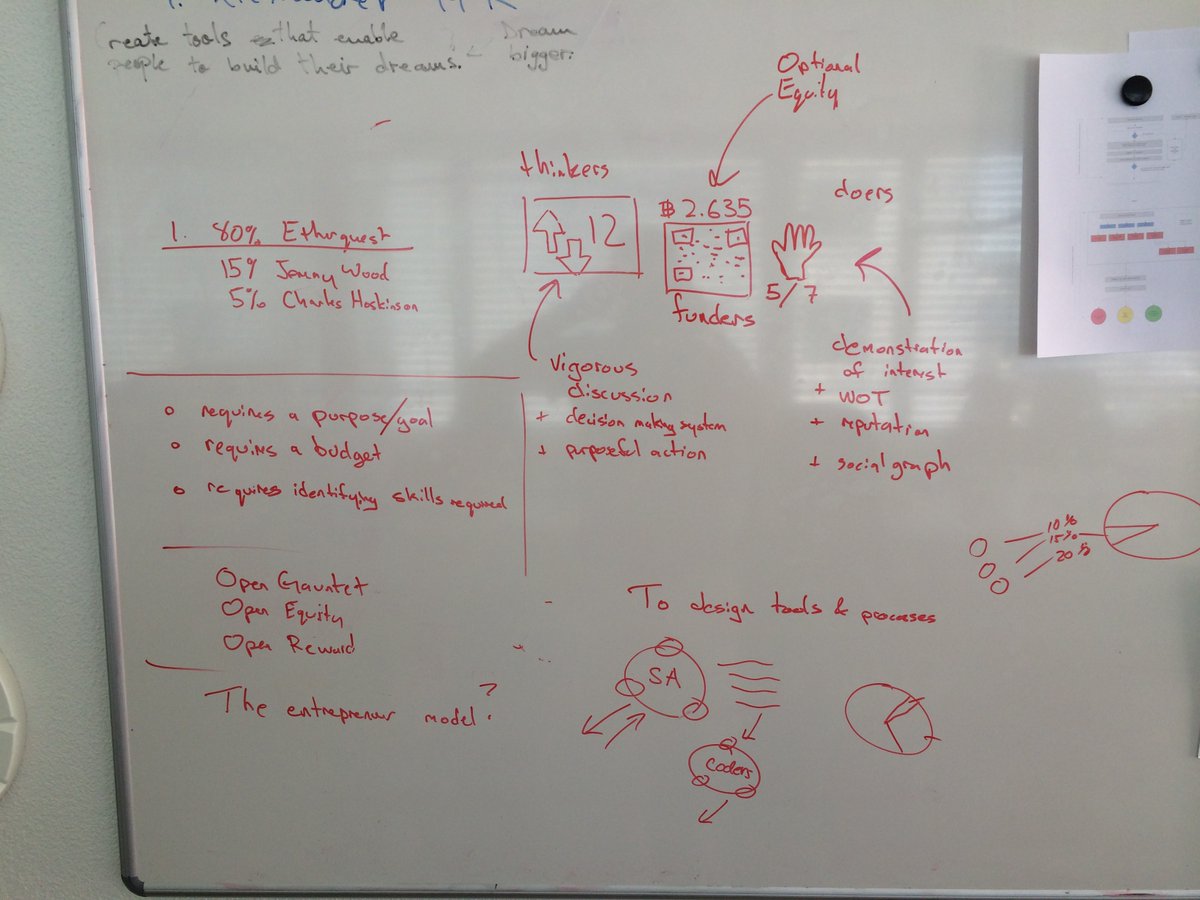 Create tools that enable
people to build their dreams.
Dream
bigger.
Optional
Equity
thinkers
12
฿ 2.635
funders
doers
5/7
1. 80% Etherquest
15% Jenny Wood
5% Charles Hoskinson
vigorous
discussion
+ decision making system
+ purposeful action
demonstration
of interest
+ WOT
+ reputation
+ social graph
o requires a purpose/goal
o requires a budget
o requires identifying skills required
10%
15%
20%
Open Gauntet
Open Equity
Open Reward
The entrepreneur model?
To design tools & processes
SA
coders